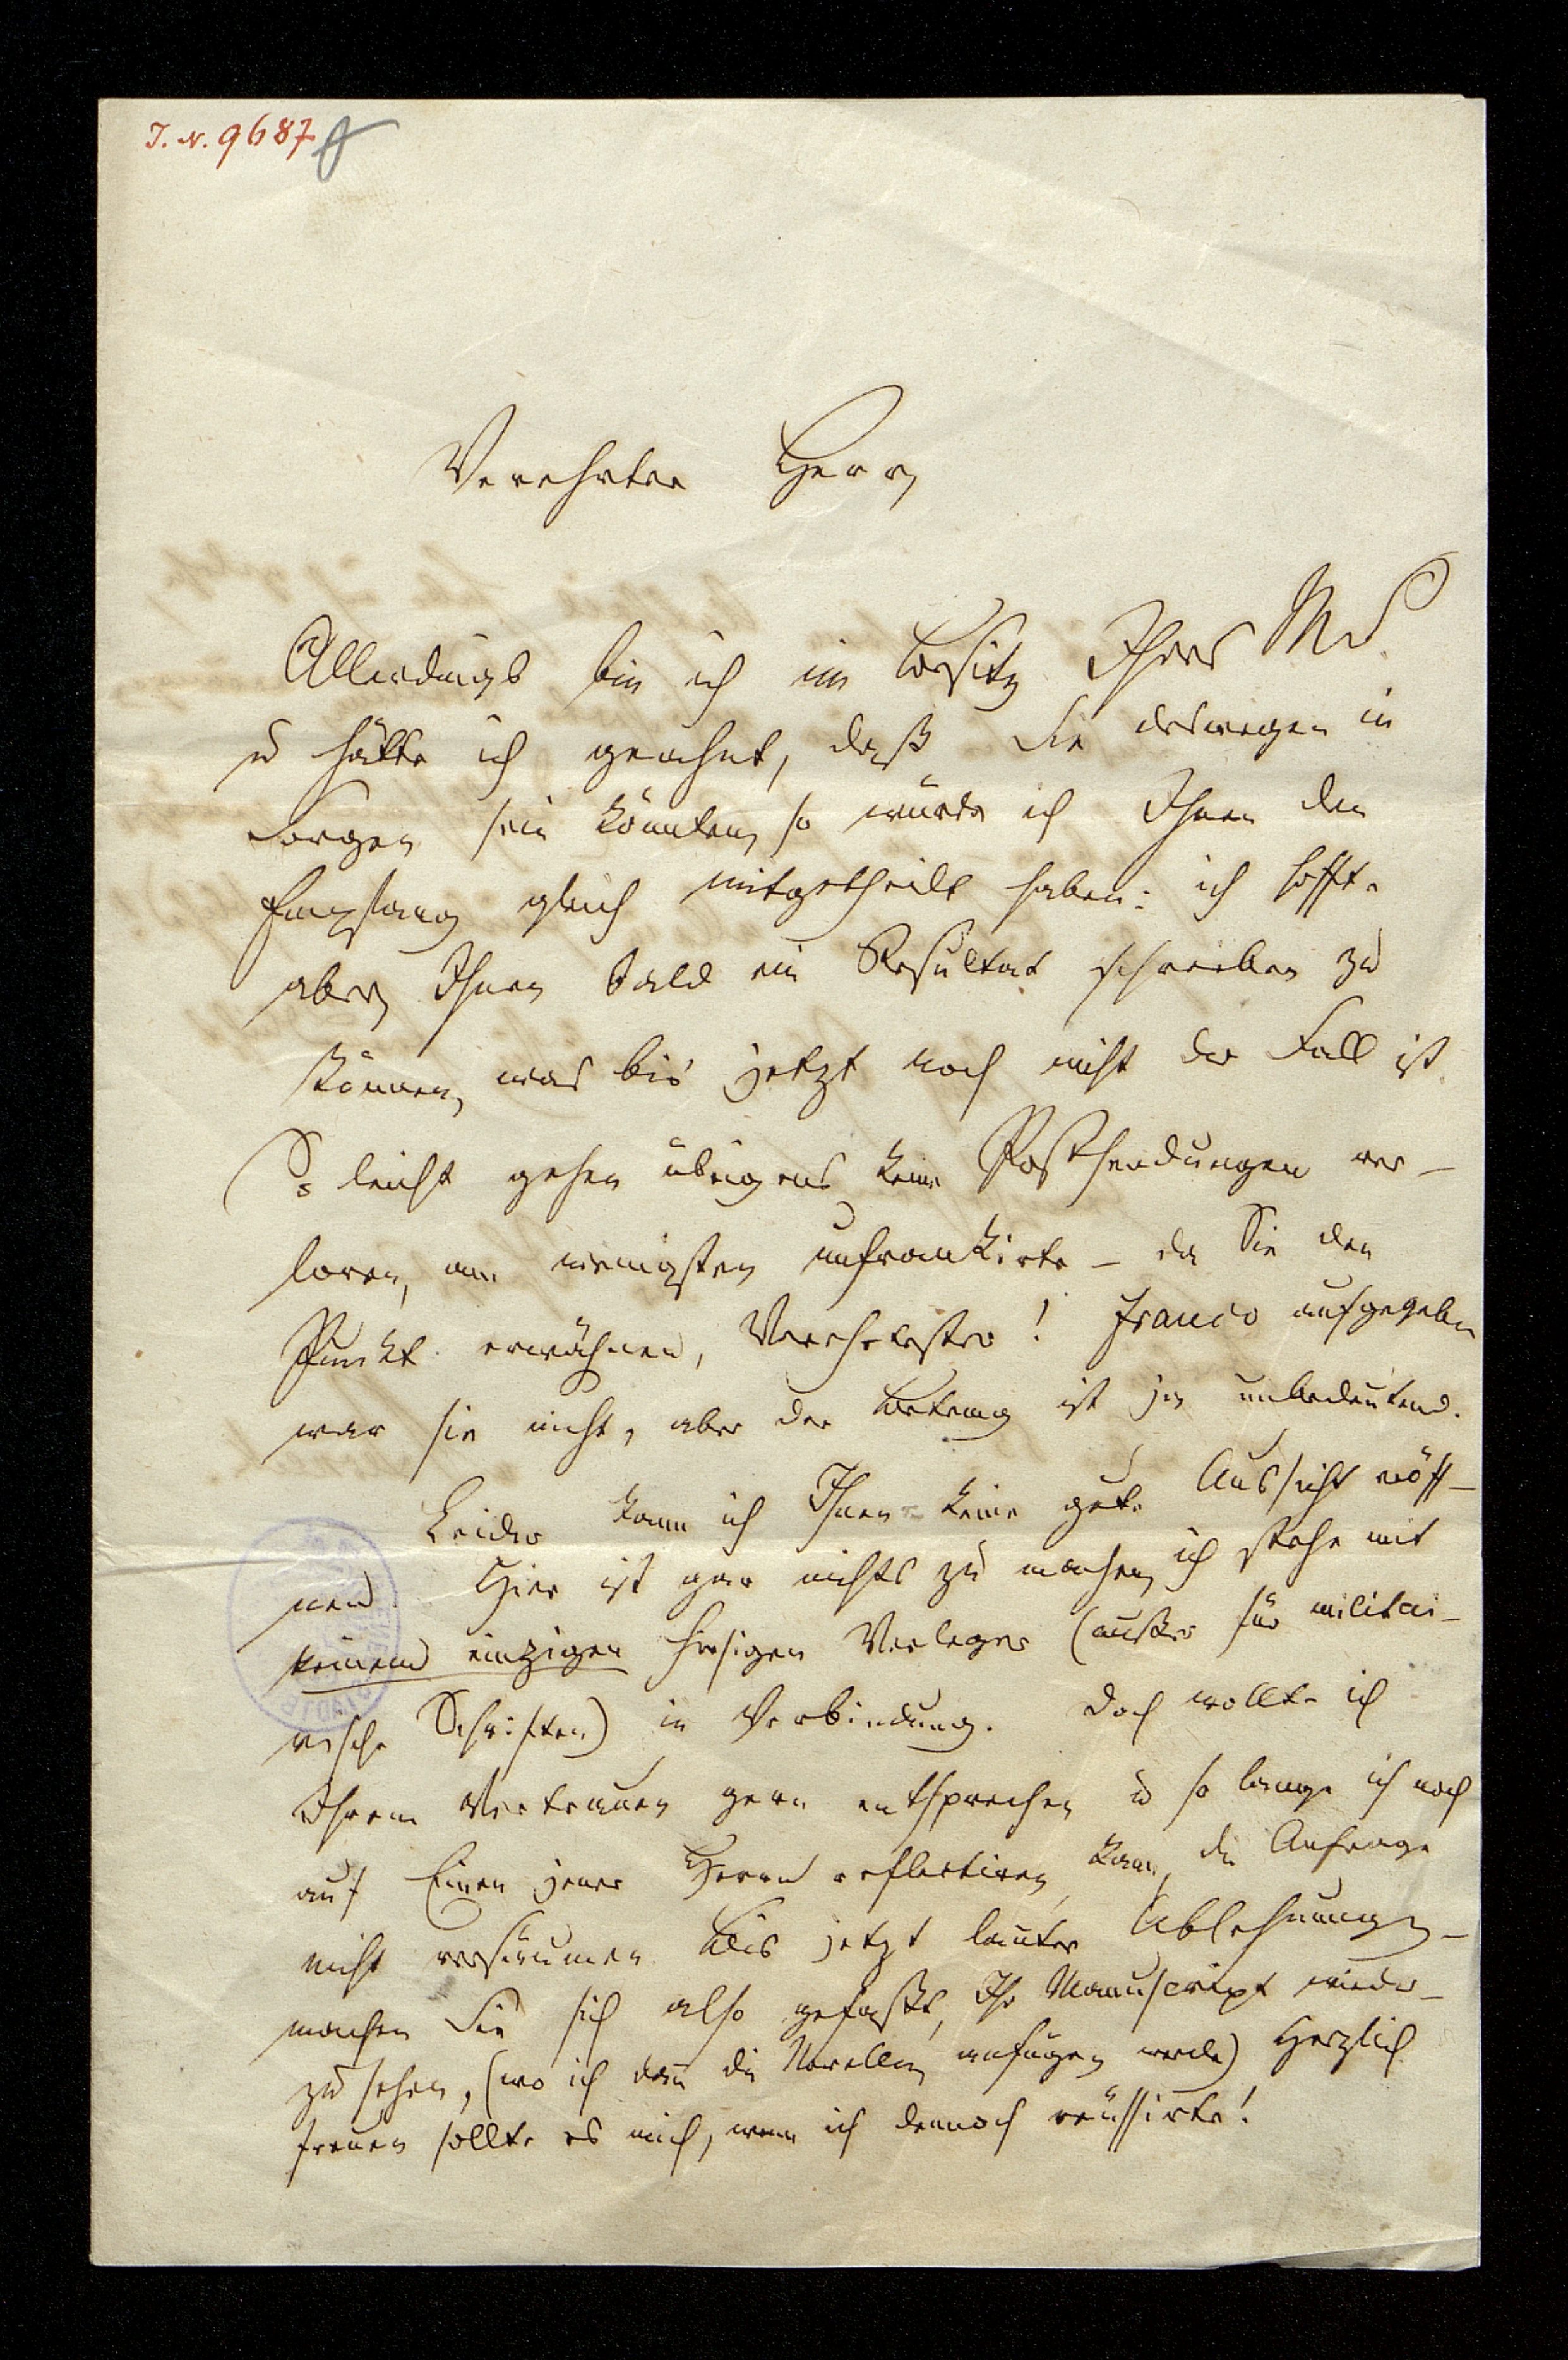 J. N. 9687
Verehrter Herr,
Allerdings bin ich im Besitz Ihres MS.
u hätte ich geahnt, daß Sie deswegen in
Sorgen sein könnten, so würde ich Ihnen den
Empfang gleich mitgetheilt haben: ich hoffte
aber, Ihnen bald ein Resultat schreiben zu
können, was bis jetzt noch nicht der Fall ist.
So leicht gehen übrigens keine Postsendungen ver-
loren, am wenigsten unfrankirte – da Sie den
Punkt erwähnen, Verehrtester! franco aufgegeben
war sie nicht, aber der Betrag ist ja unbedeutend.
Leider kann ich Ihnen keine gute Aussicht eröff-
nen. Hier ist gar nichts zu machen, ich stehe mit
keinem einzigen hiesigen Verleger (außer für militai-
rische Schriften) in Verbindung. Doch wollte ich
Ihrem Vertrauen gern entsprechen u so lange ich noch
auf Einen jener Herrn reflectiren kann, die Anfrage
nicht versäumen. Bis jetzt lauter Ablehnungen –
machen Sie sich also gefaßt, Ihr Manuscript wieder-
zu sehen, (wo ich dann die Novellen anfügen werde) Herzlich
freuen sollte es mich, wenn ich dennoch reüssirte!